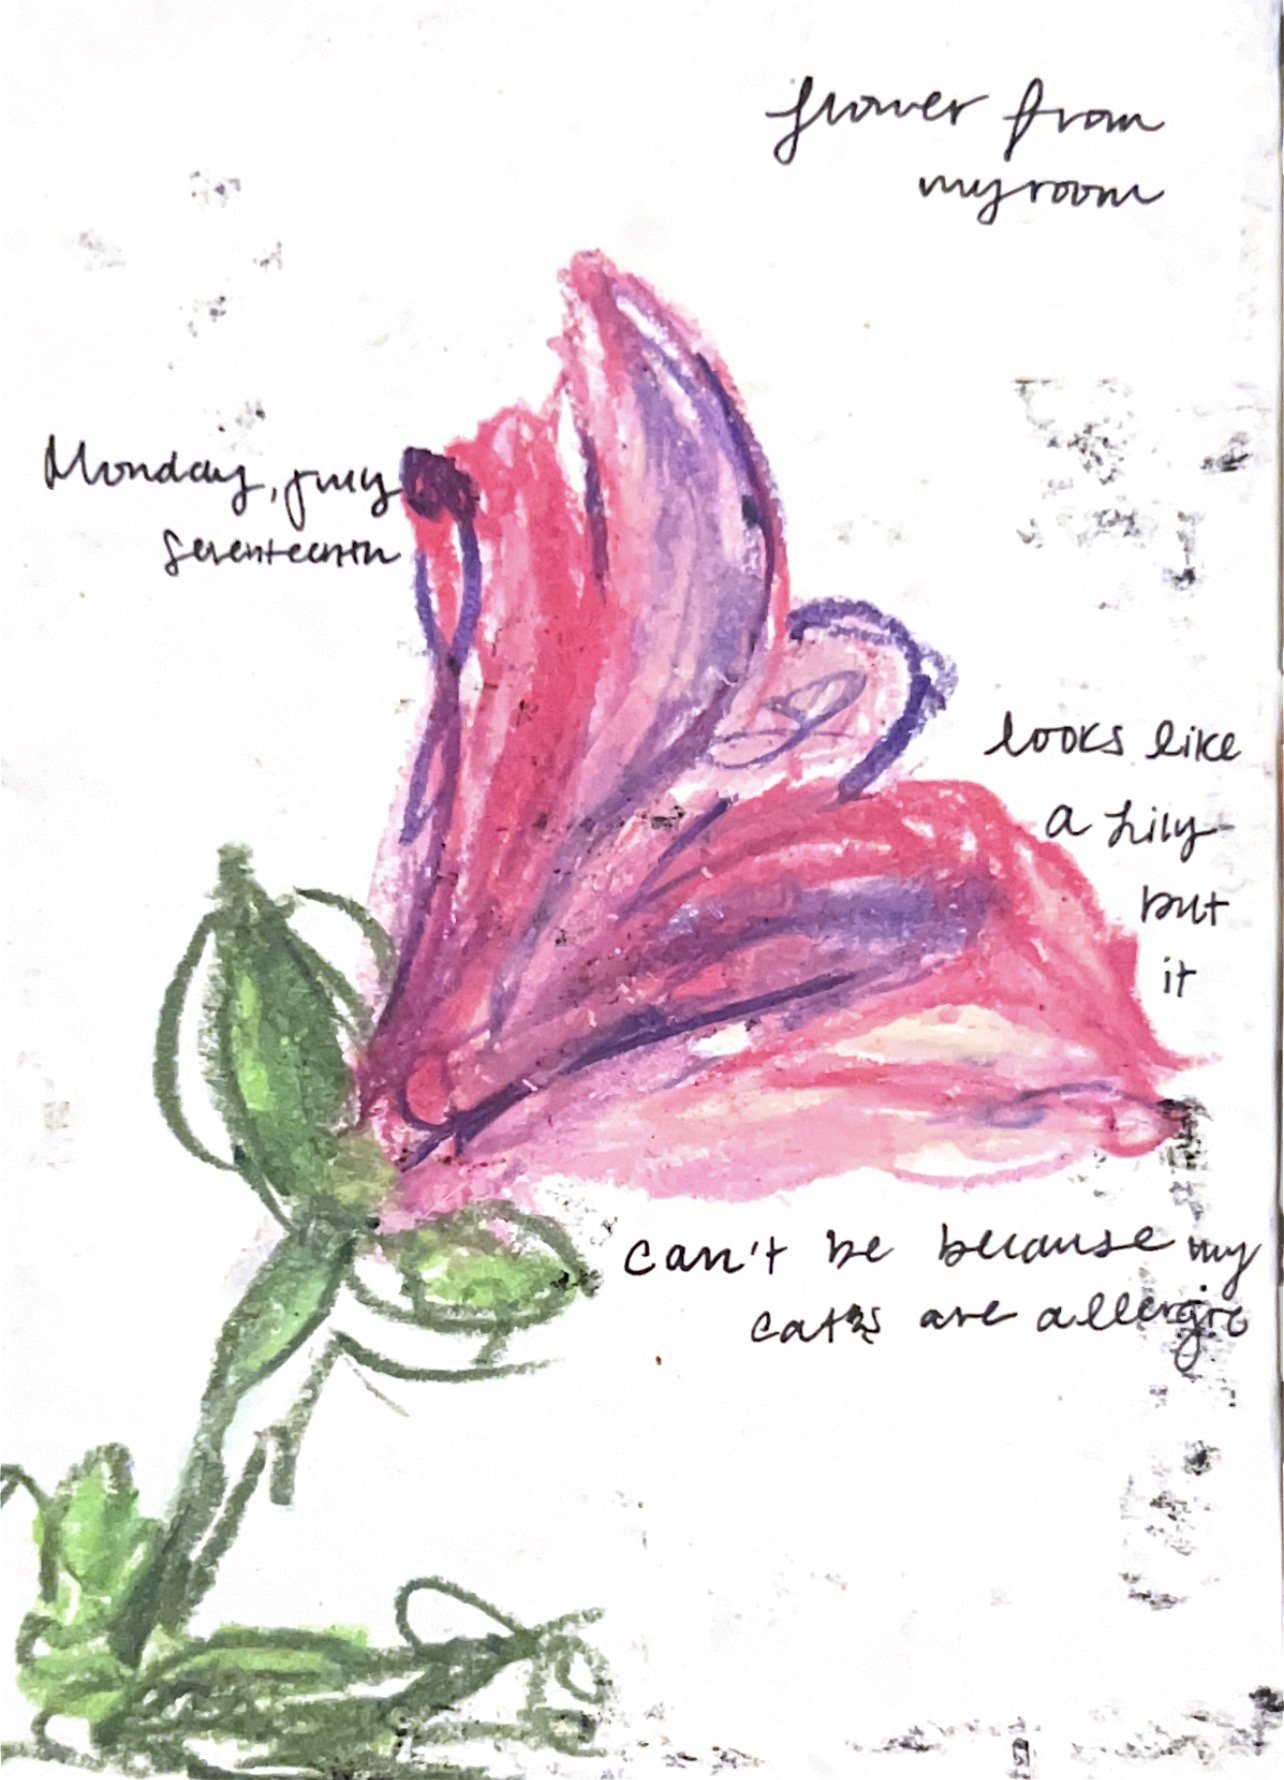 flower from
my room
Monday, july
seventeenth
looks like
a Lily
but
it
can't be because my
cats are allergic